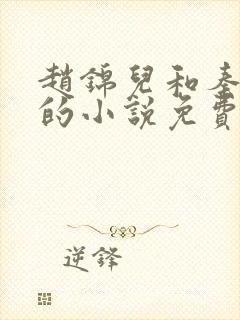 趙錦兒和秦
的小說免費
逆鋒